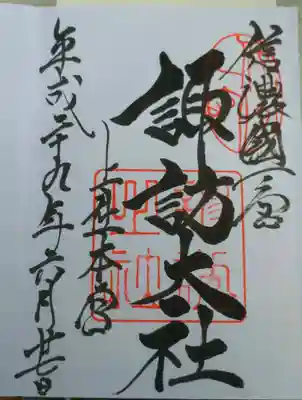 信濃國一宮
諏訪大社
上社本宮
平成二十九年六月廿七日